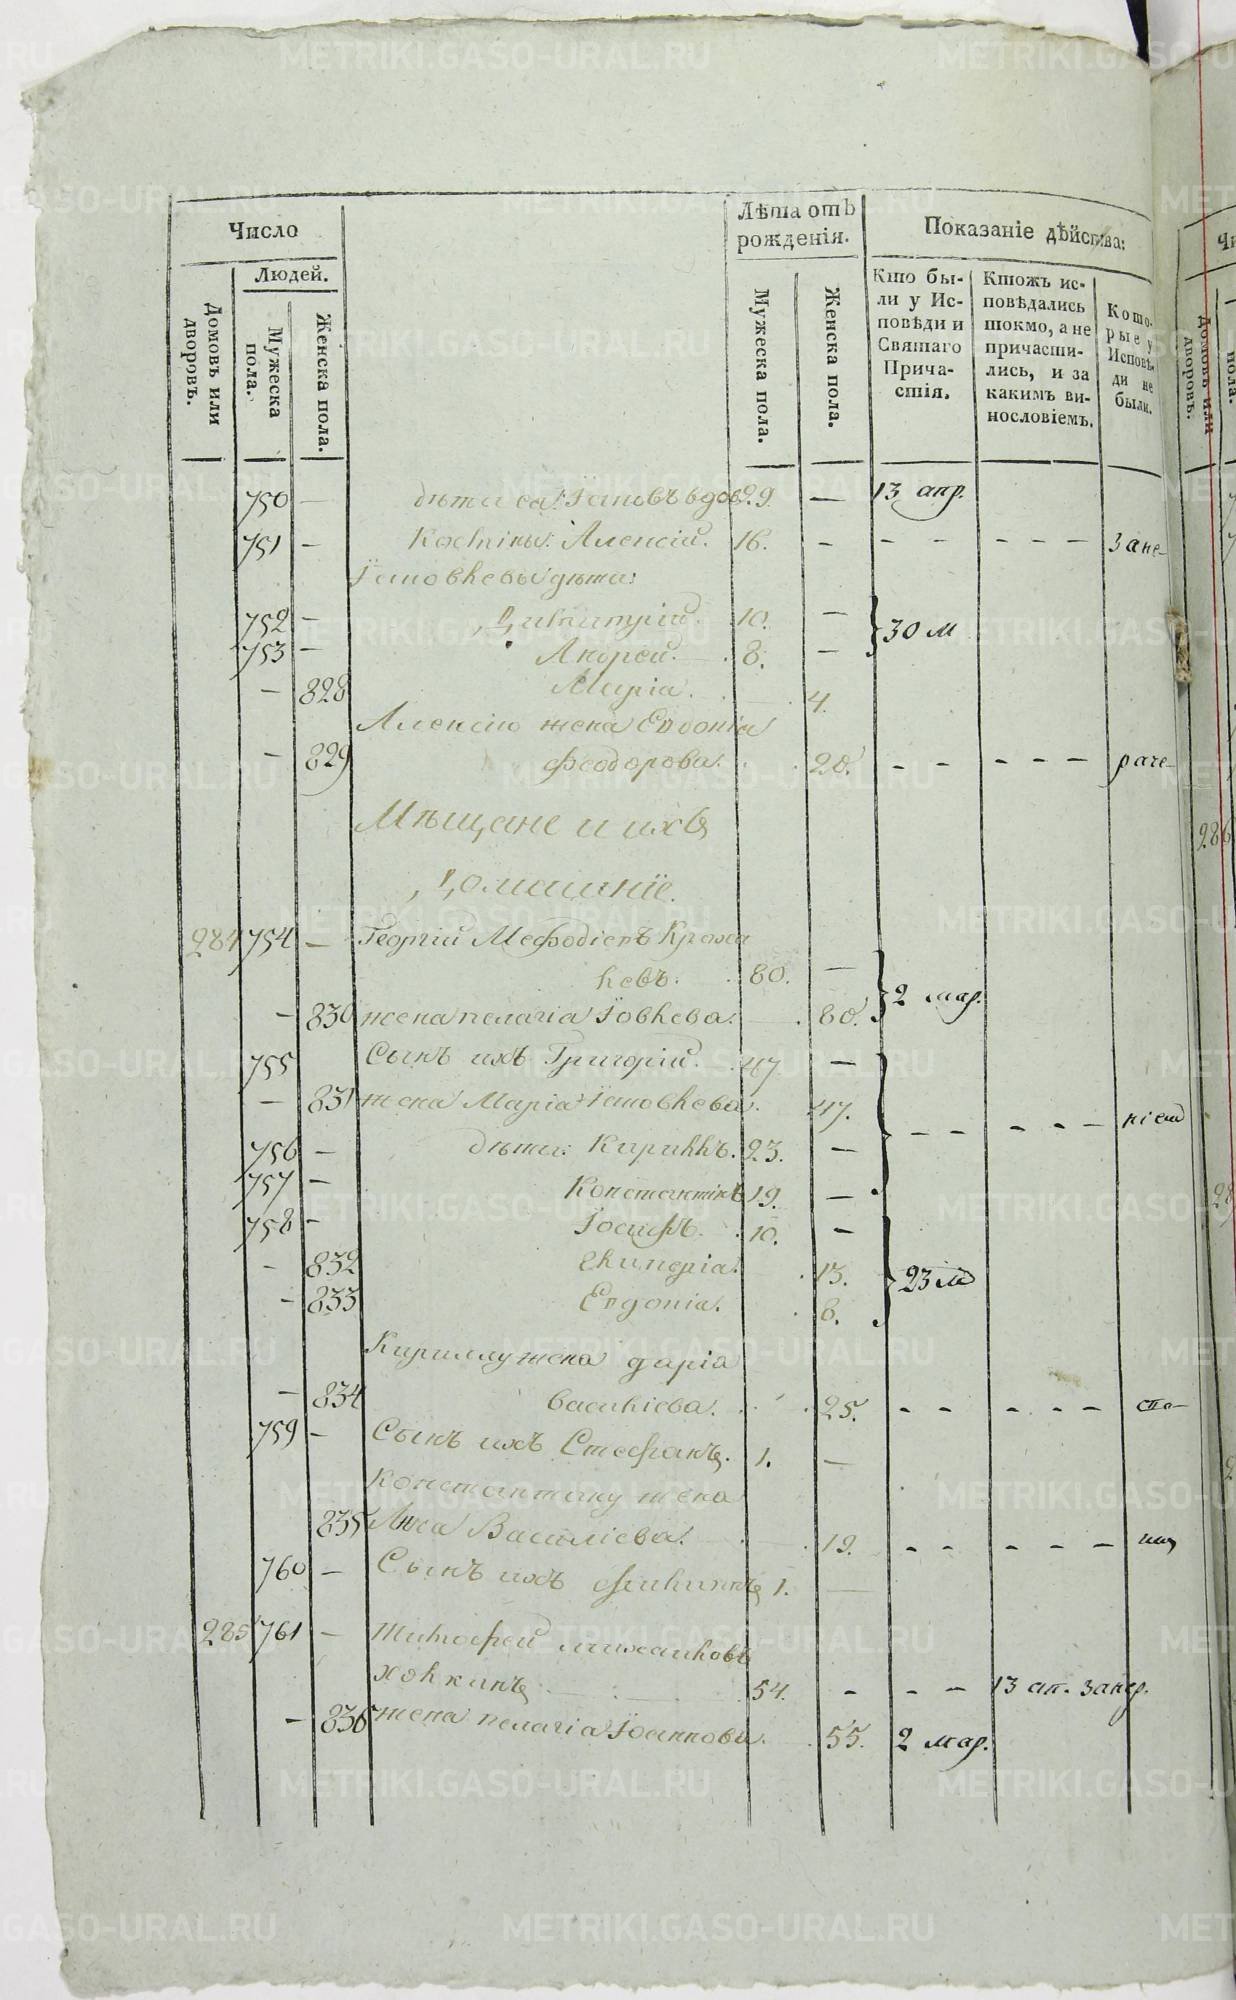 Число
Людей.
Домовъ или дворовъ.
Мужеска пола.
Женска пола.
Лѣта отъ рожденія.
Мужеска пола.
Женска пола.
Показаніе дѣйства:
Кто были у Исповѣди и Святаго Причастія.
Ктожъ исповѣдались токмо, а не причастились, и за какимъ винословіемъ.
Которые у Исповѣди не были.
750 — дѣти его: 29. — 13 апр.
751 — Алексій. 16. – – – – – – зане–
дѣти:
752 — Димитрій. 10. — 30 м
753 — Андрей. 8. —
— 828 Марія. 4.
Алексію жена Евдокія
— 829 Феодорова. 20. – – – – – раче–
Мѣщане и ихъ
домашніе.
284 754 — Георгій Мефодіевъ
80. — 2 мар.
— 830 жена Пелагія Іовлева. 80.
755 Сынъ ихъ Григорій. 47. —
— 831 жена Марія 47. – – – – – ніемъ
756 — дѣти: Кириллъ. 23. —
757 — Константинъ 19. —
758 — Іосифъ. 10. —
— 832 13. 23 м
— 833 Евдокія. 8.
Кириллу жена Дарія
— 834 Василіева. 25. – – – – –
759 — Сынъ ихъ Стефанъ. 1. —
Константину жена
835 Анна Василіева. 19. – – – – –
760 — Сынъ ихъ Филиппъ 1. —
285 761 — Тимофей Михаиловъ
54. – – – 13 ап.
— 836 жена Пелагія Іоаннова. 55. 2 мар.
METRIKI.GASO-URAL.RU